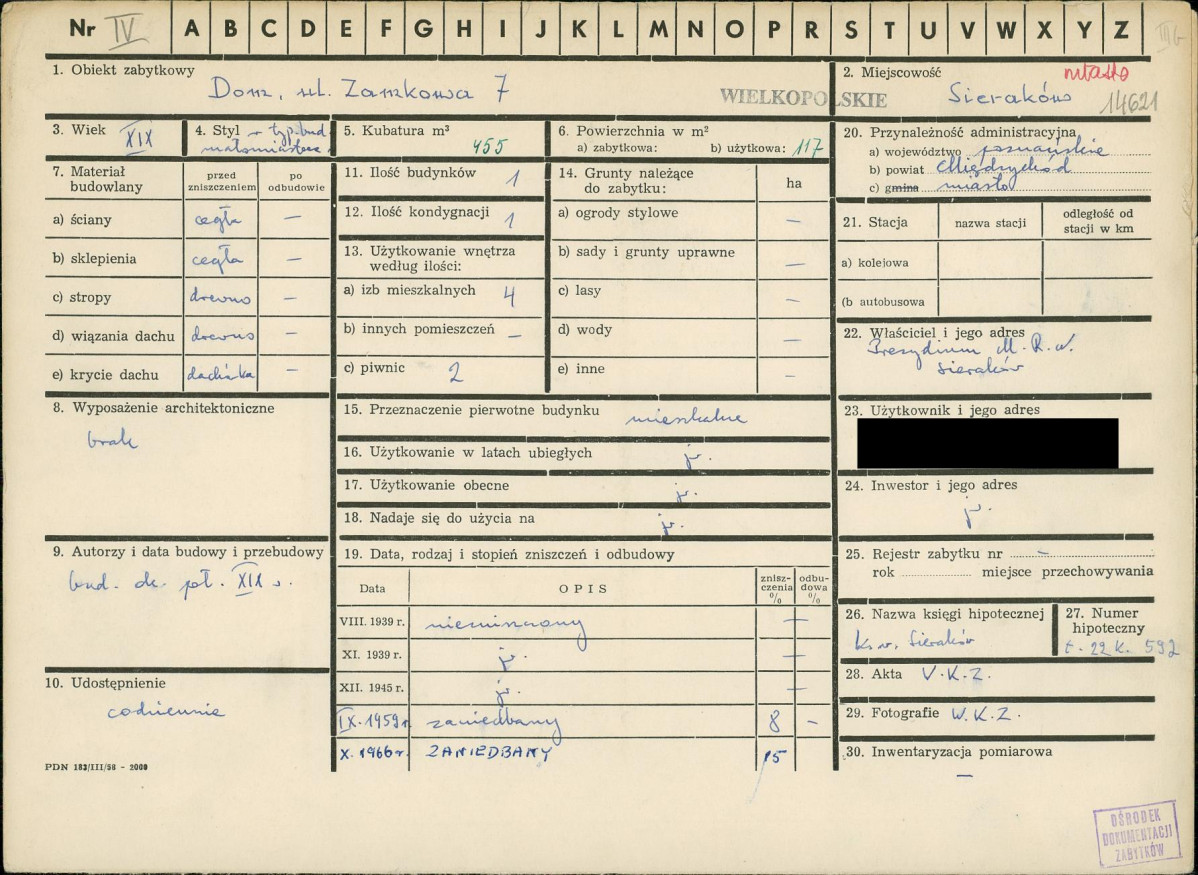 Nr IV A B C D E F G H I J K L M N O P R S T U V W X Y Z
1. Obiekt zabytkowy
Dom, ul. Zamkowa 7
WIELKOPOLSKIE
2. Miejscowość
miasto
Sieraków 14621
3. Wiek XIX
4. Styl typ. bud.
małomiastecz.
5. Kubatura m³
455
6. Powierzchnia w m²
a) zabytkowa: b) użytkowa: 117
20. Przynależność administracyjna
a) województwo poznańskie
b) powiat Międzychód
c) gmina miasto
7. Materiał budowlany
przed zniszczeniem
po odbudowie
a) ściany cegła —
b) sklepienia cegła —
c) stropy drewno —
d) wiązania dachu drewno —
e) krycie dachu dachówka —
11. Ilość budynków 1
12. Ilość kondygnacji 1
13. Użytkowanie wnętrza
według ilości:
a) izb mieszkalnych 4
b) innych pomieszczeń —
c) piwnic 2
14. Grunty należące
do zabytku:
ha
a) ogrody stylowe —
b) sady i grunty uprawne —
c) lasy —
d) wody —
e) inne —
21. Stacja
nazwa stacji
odległość od
stacji w km
a) kolejowa
(b autobusowa
22. Właściciel i jego adres
Prezydium M.R.N.
Sieraków
8. Wyposażenie architektoniczne
brak
15. Przeznaczenie pierwotne budynku mieszkalne
16. Użytkowanie w latach ubiegłych j.w.
17. Użytkowanie obecne j.w.
18. Nadaje się do użycia na j.w.
23. Użytkownik i jego adres
24. Inwestor i jego adres
j.w.
9. Autorzy i data budowy i przebudowy
bud. ok. poł. XIX w.
19. Data, rodzaj i stopień zniszczeń i odbudowy
Data
OPIS
znisz-
czenia
%
odbu-
dowa
%
VIII. 1939 r. niezniszczony —
XI. 1939 r. j.w. —
XII. 1945 r. j.w. —
IX. 1959 r. zaniedbany 8 —
X. 1966 r. ZANIEDBANY 15
25. Rejestr zabytku nr —
rok miejsce przechowywania
26. Nazwa księgi hipotecznej
Ks. w. Sieraków
27. Numer
hipoteczny
t. 22 k. 592
28. Akta W.K.Z.
29. Fotografie W.K.Z.
30. Inwentaryzacja pomiarowa
—
10. Udostępnienie
codziennie
PDN 183/III/58 - 2000
OŚRODEK
DOKUMENTACJI
ZABYTKÓW